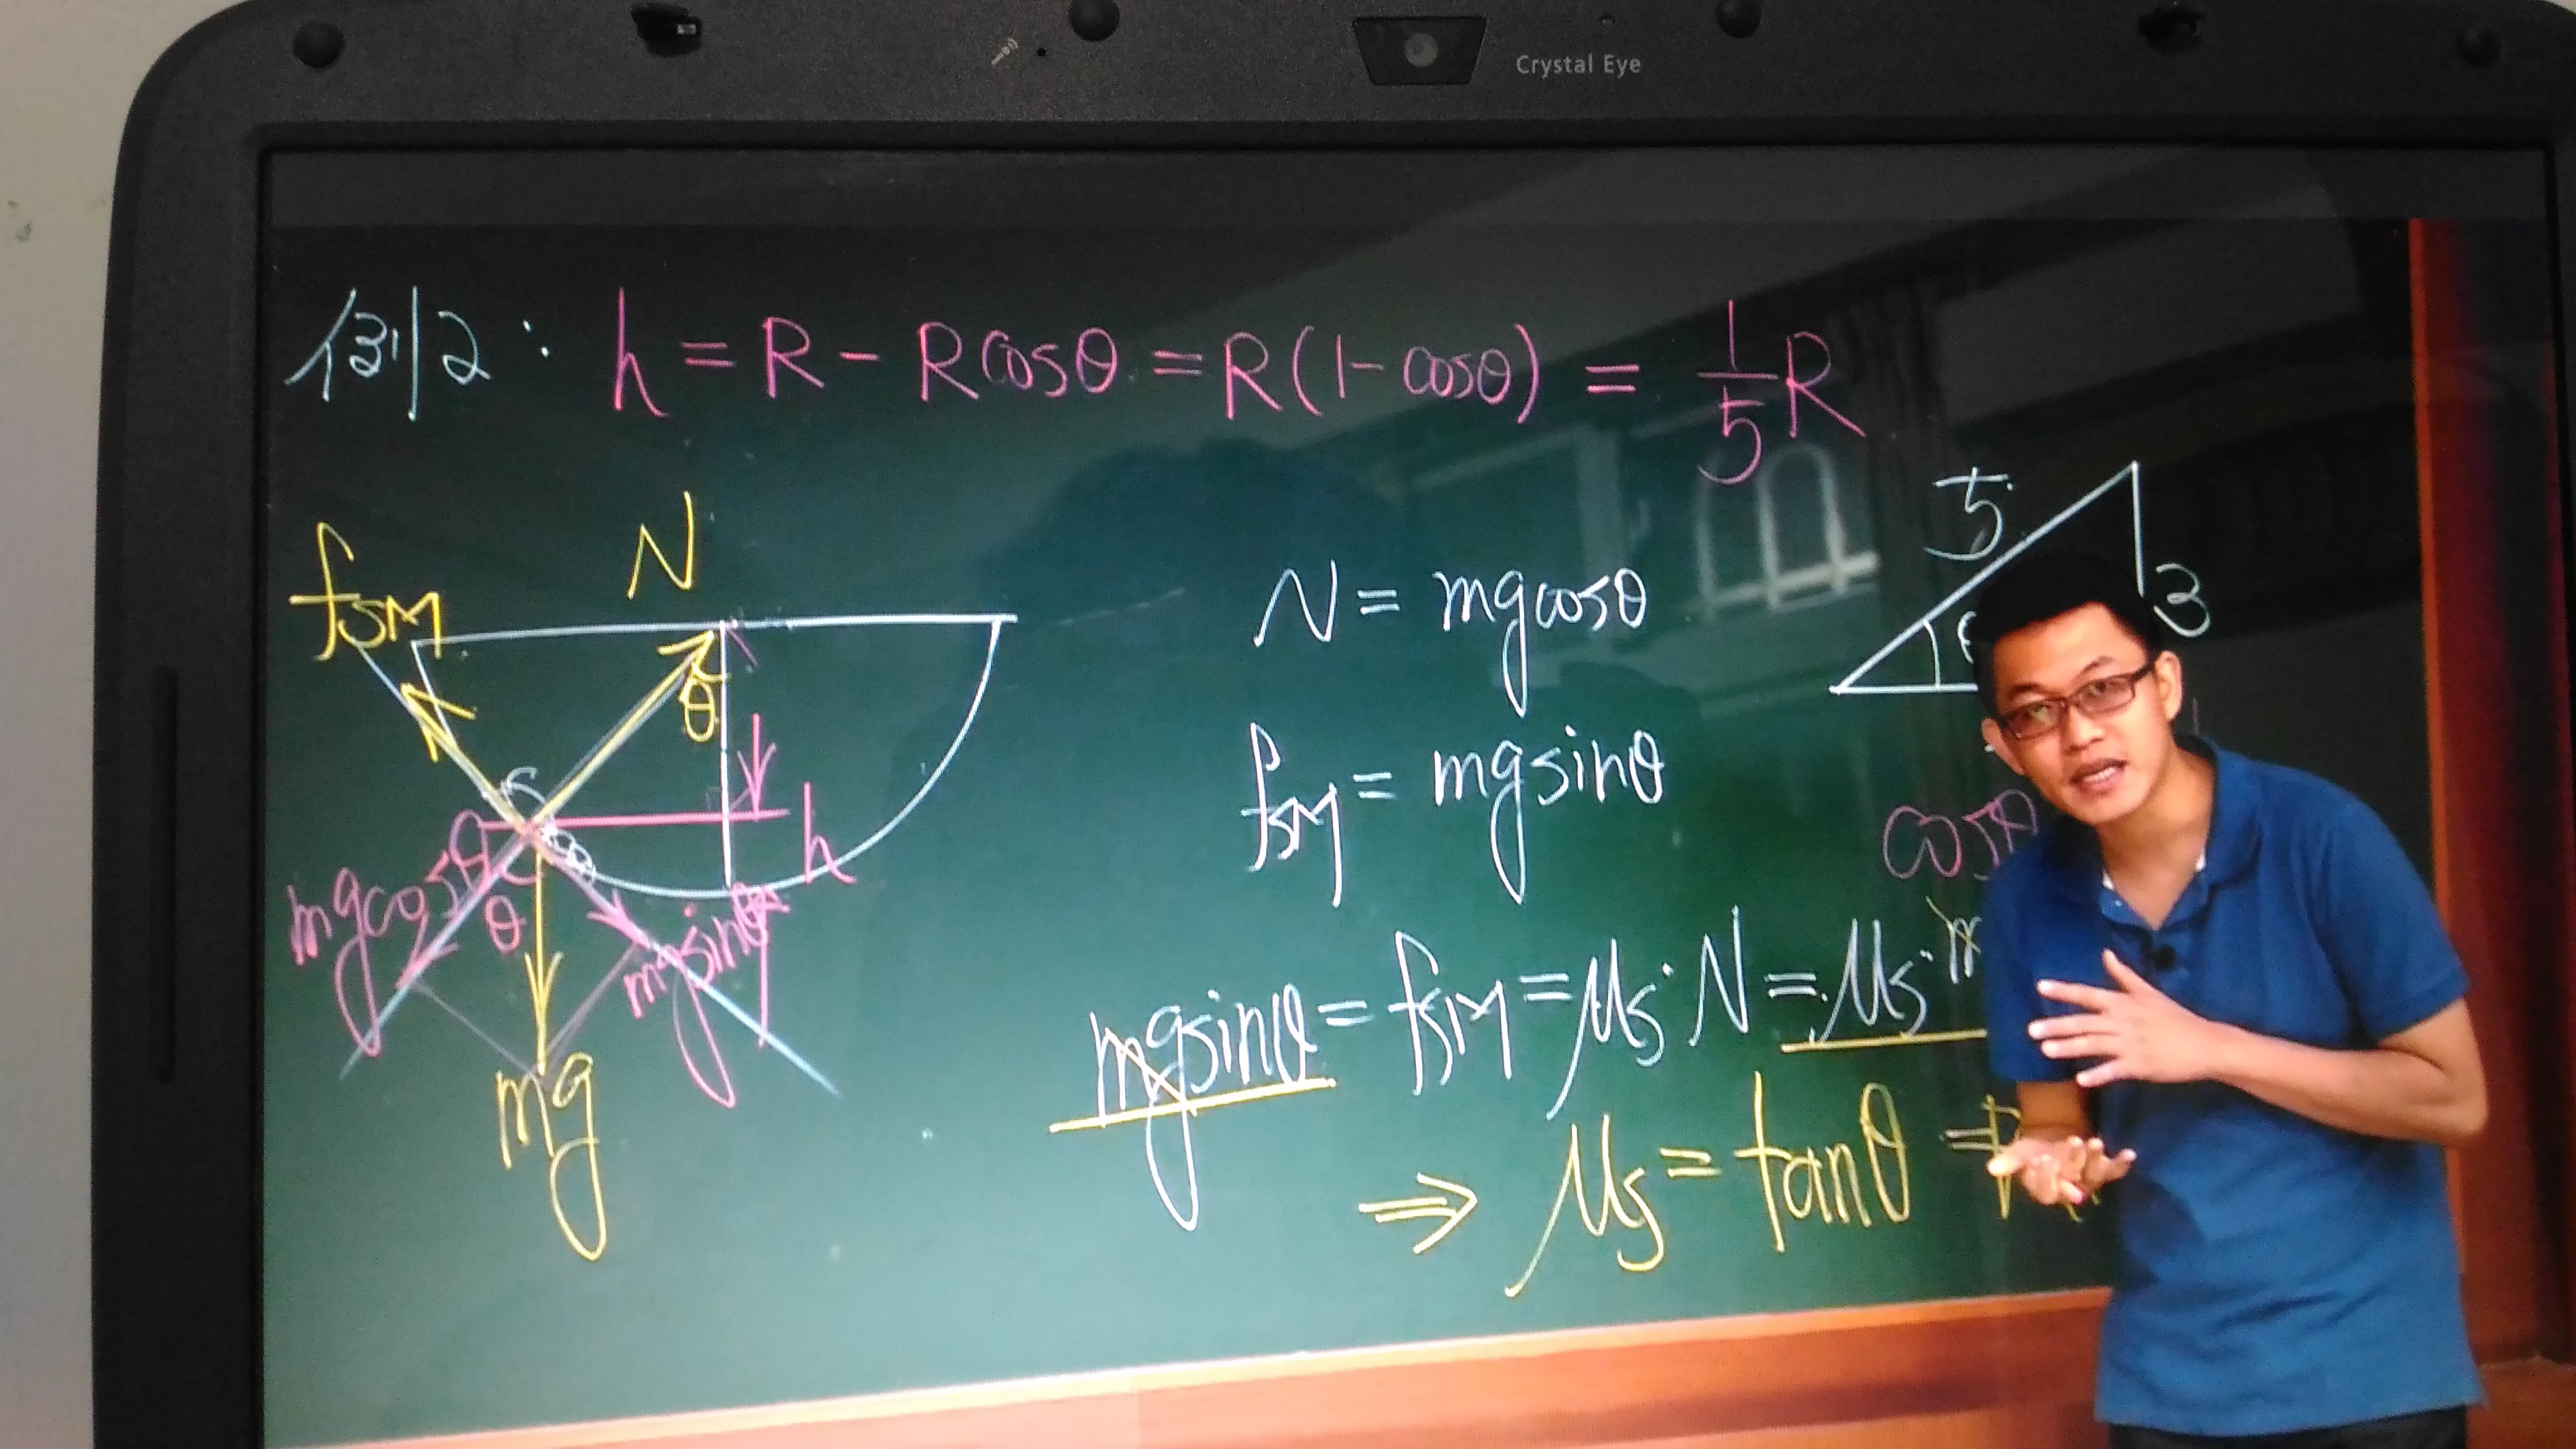 Crystal Eye
例2: h = R - Rcosθ = R(1-cosθ) = 1/5 R
5
3
θ
fsM
N
θ
h
mgcosθ
θ
mgsinθ
mg
N = mgcosθ
fsM = mgsinθ
cosθ
mgsinθ = fsM = μs·N = μs·m
⇒ μs = tanθ ⇒